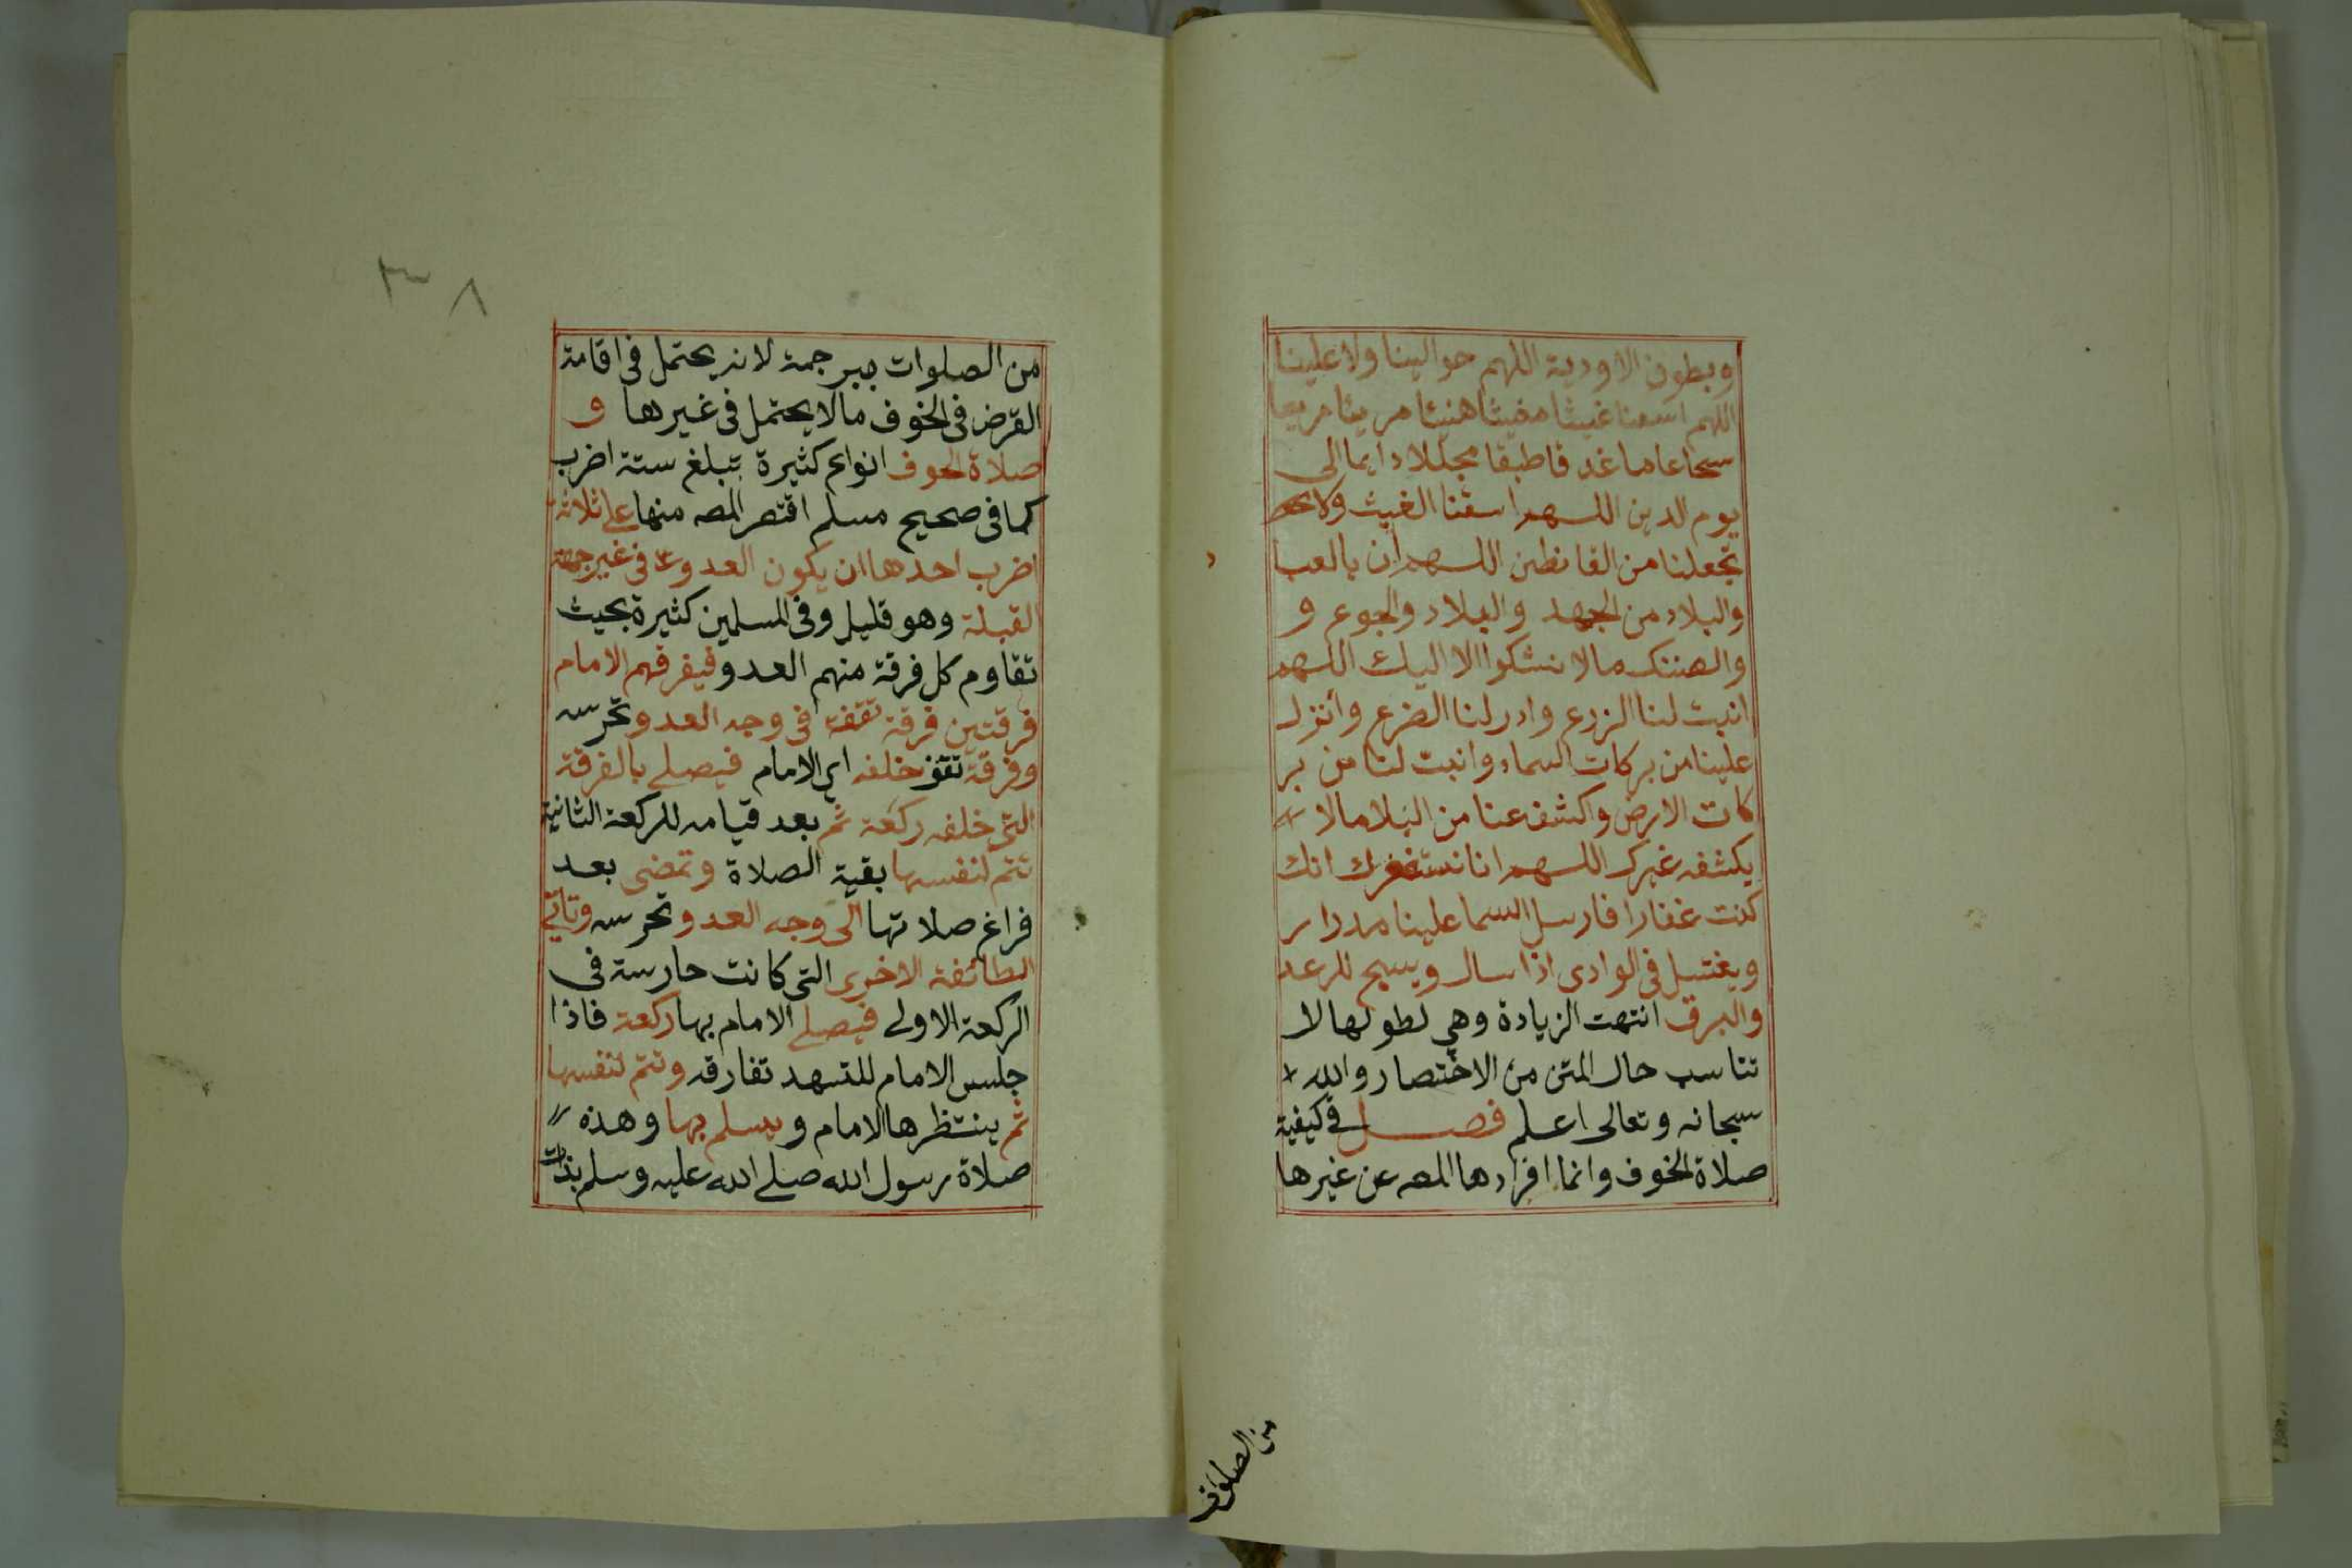 وبطون الاودية اللهم حوالينا ولا علينا
اللهم اسقنا غيثا مغيثا هنيئا مريئا مريعا
سحا عاما غدقا طبقا مجللا دايما الى
يوم الدين اللهم اسقنا الغيث ولا
تجعلنا من القانطين اللهم ان بالعبا
والبلاد من الجهد والبلاد والجوع و
والضنك ما لا نشكوا الا اليك اللهم
انبت لنا الزرع وادر لنا الضرع وانزل
علينا من بركات السماء وانبت لنا من بر
كات الارض واكشف عنا من البلا ما لا
يكشفه غيرك اللهم انا نستغفرك انك
كنت غفارا فارسل السما علينا مدرار
ويغتسل فى الوادى اذا سال ويسبح للرعد
والبرق انتهت الزيادة وهي لطولها لا
تناسب حال المتن من الاختصار والله
سبحانه وتعالى اعلم فصل في كيفية
صلاة الخوف وانما افردها المصه عن غيرها
من الصلوات
٣٨
من الصلوات ببرجمة لانه يحتمل فى اقامة
الفرض فى الخوف مالا يحتمل فى غيرها و
صلاة الخوف انواع كثيرة تبلغ ستة اضرب
كما فى صحيح مسلم اقتصر المصه منها على ثلاثة
اضرب احدها ان يكون العدو فى غير جهة
القبلة وهو قليل وفى المسلمين كثيرة بحيث
تقاوم كل فرقة منهم العدو فيفرقهم الامام
فرقتين فرقة تقف فى وجه العدو تحرس
وفرقة تقف خلفه اي الامام فيصلى بالفرقة
التى خلفه ركعة ثم بعد قيامه للركعة الثانية
تتم لنفسها بقية الصلاة وتمضى بعد
فراغ صلاتها الى وجه العدو تحرس وتاتي
الطائفة الاخرى التى كانت حارسة فى
الركعة الاولى فيصلى الامام بها ركعة فاذا
جلس الامام للتسهد تفارقه وتتم لنفسها
ثم ينتظرها الامام ويسلم بها وهذه
صلاة رسول الله صلى الله عليه وسلم بذات